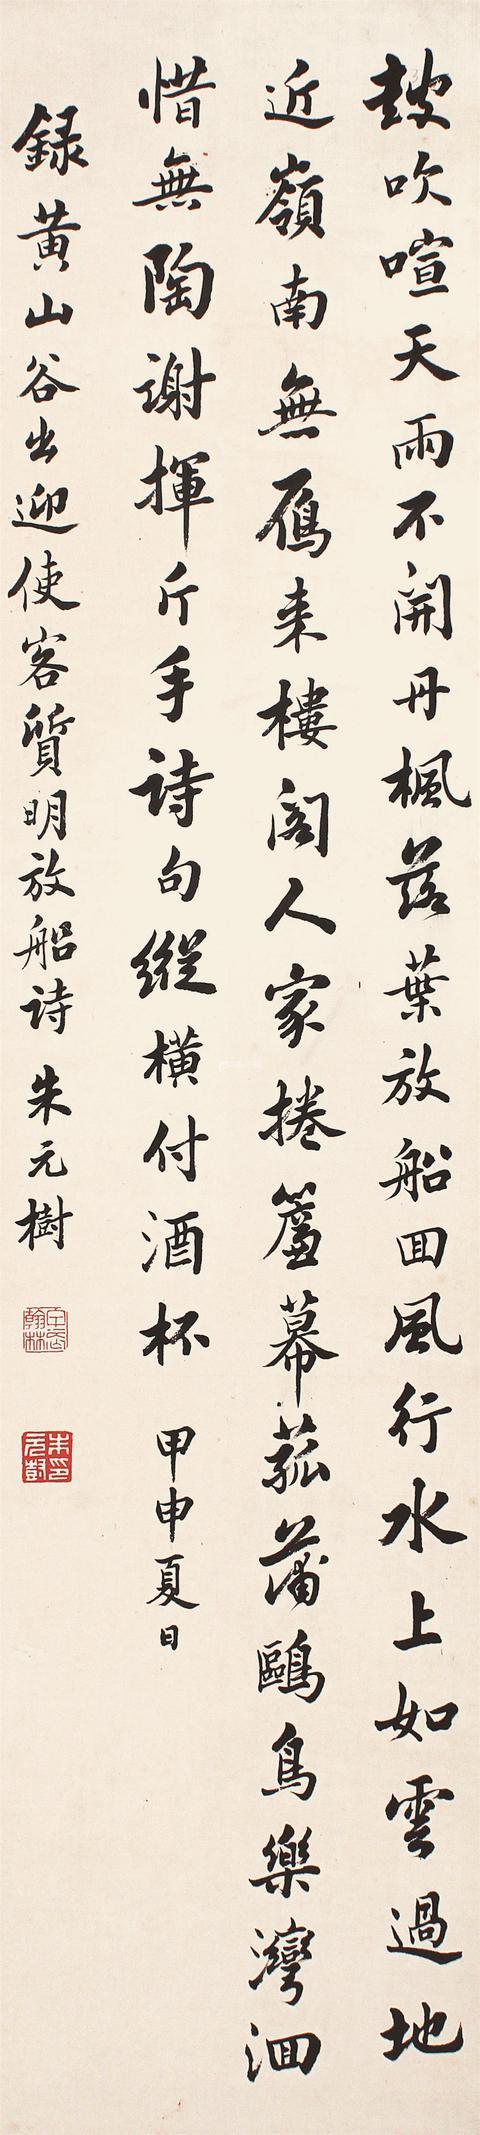 鼓吹喧天雨不開丹楓落葉放船回風行水上如雲過地
近嶺南無雁来樓閣人家捲簾幕菰蒲鷗鳥樂灣洄
惜無陶謝揮斤手詩句縱橫付酒杯 甲申夏日
録黄山谷出迎使客質明放船詩 朱元樹
朱印元樹